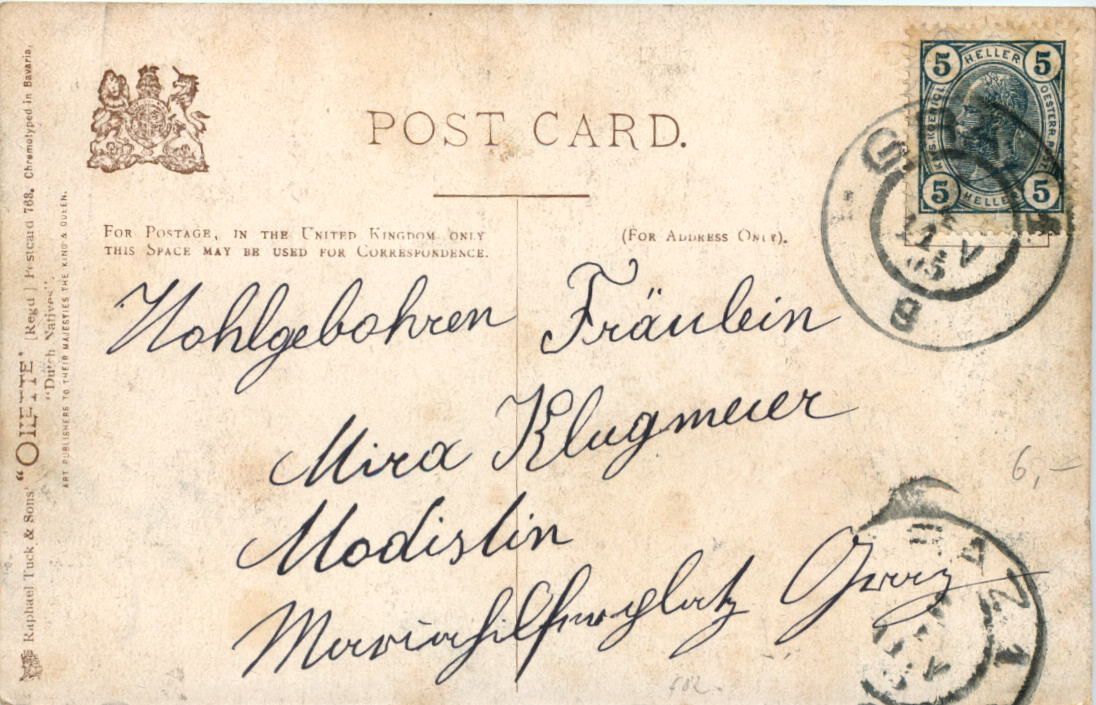 POST CARD.
FOR POSTAGE, IN THE UNITED KINGDOM ONLY
THIS SPACE MAY BE USED FOR CORRESPONDENCE.
(FOR ADDRESS ONLY).
5 HELLER 5
KAIS. KOENIGL. OESTERR. POST
5 HELLER 5
Wohlgebohren Fräulein
Mira Klugmeier
Modistin
Mariahilferplatz Graz
6,-
682
Raphael Tuck & Sons' "OILETTE" [Regd.] Postcard 768. Chromotyped in Bavaria.
"Dutch Natives".
ART PUBLISHERS TO THEIR MAJESTIES THE KING & QUEEN.